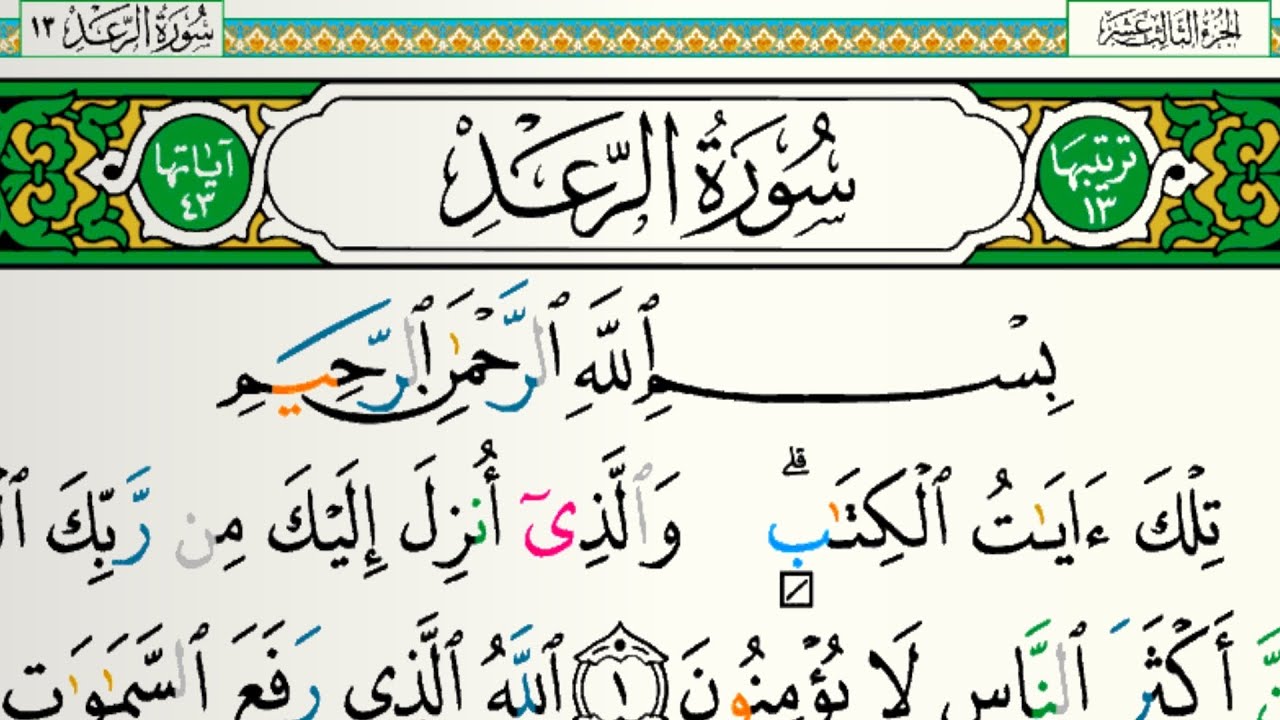 الجزء الثالث عشر
سُورَةُ الرَّعْدِ ١٣
ترتيبها ١٣
سُورَةُ الرَّعْدِ
آياتها ٤٣
بِسْمِ ٱللَّهِ ٱلرَّحْمَٰنِ ٱلرَّحِيمِ
تِلْكَ ءَايَٰتُ ٱلْكِتَٰبِ ۗ وَٱلَّذِىٓ أُنزِلَ إِلَيْكَ مِن رَّبِّكَ
أَكْثَرَ ٱلنَّاسِ لَا يُؤْمِنُونَ ١ ٱللَّهُ ٱلَّذِى رَفَعَ ٱلسَّمَٰوَٰتِ